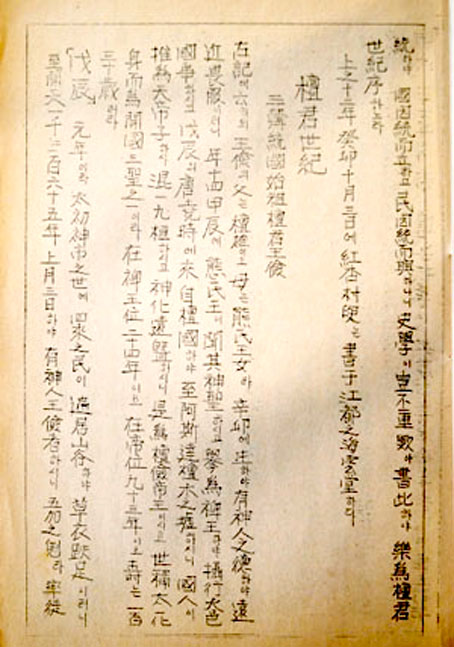 統하야 國因統而立하고 民因統而興하나니 史學이 豈不重歟아 書此하야 樂爲檀君
世紀序하노라
上之十二年癸卯十月三日에 紅杏村叟는 書于江都之海雲堂하다
檀君世紀
三韓統國始祖檀君王儉
古記에 云 王儉의 父는 檀雄이오 母는 熊氏王女라 辛卯에 生하야 有神人之德하야 遠
近畏服이러니 年十四甲辰에 熊氏王이 聞其神聖하고 擧爲裨王하야 攝行大邑
國事하고 戊辰의 唐堯時에 來自檀國하야 至阿斯達檀木之墟하시니 國人이
推爲天帝子하야 混一九檀하고 神化遠曁하시니 是爲檀儉帝王이시고 世稱太一化
身而爲開國三聖之一이라 在裨王位二十四年이시고 在帝位九十三年이시고 壽는 一百
三十歲러라
戊辰 元年이라 太初神市之世에 四來之民이 遍居山谷하야 草衣跣足이러니
至開天一千五百六十五年 上月三日하야 有神人王儉者하시니 五加之魁라 率徒